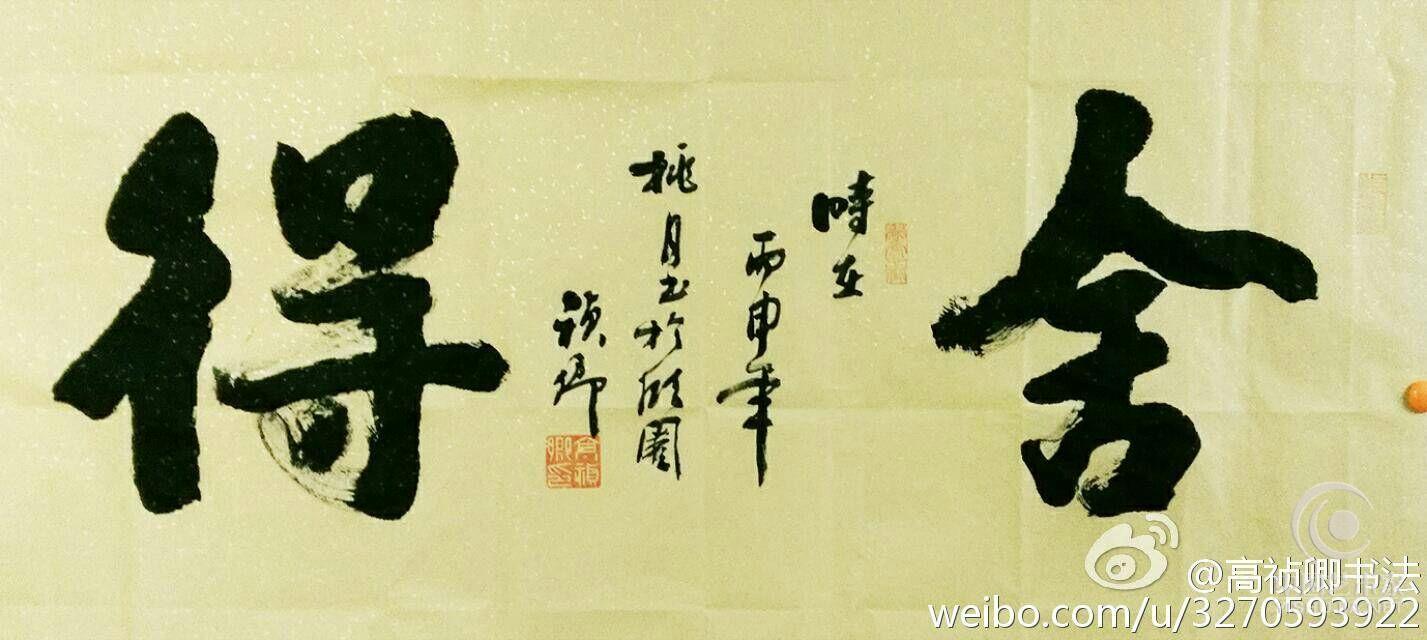 舍得
時在
丙申年
桃月书於欣園
禎卿
高禎卿印
@高祯卿书法
weibo.com/u/3270593922